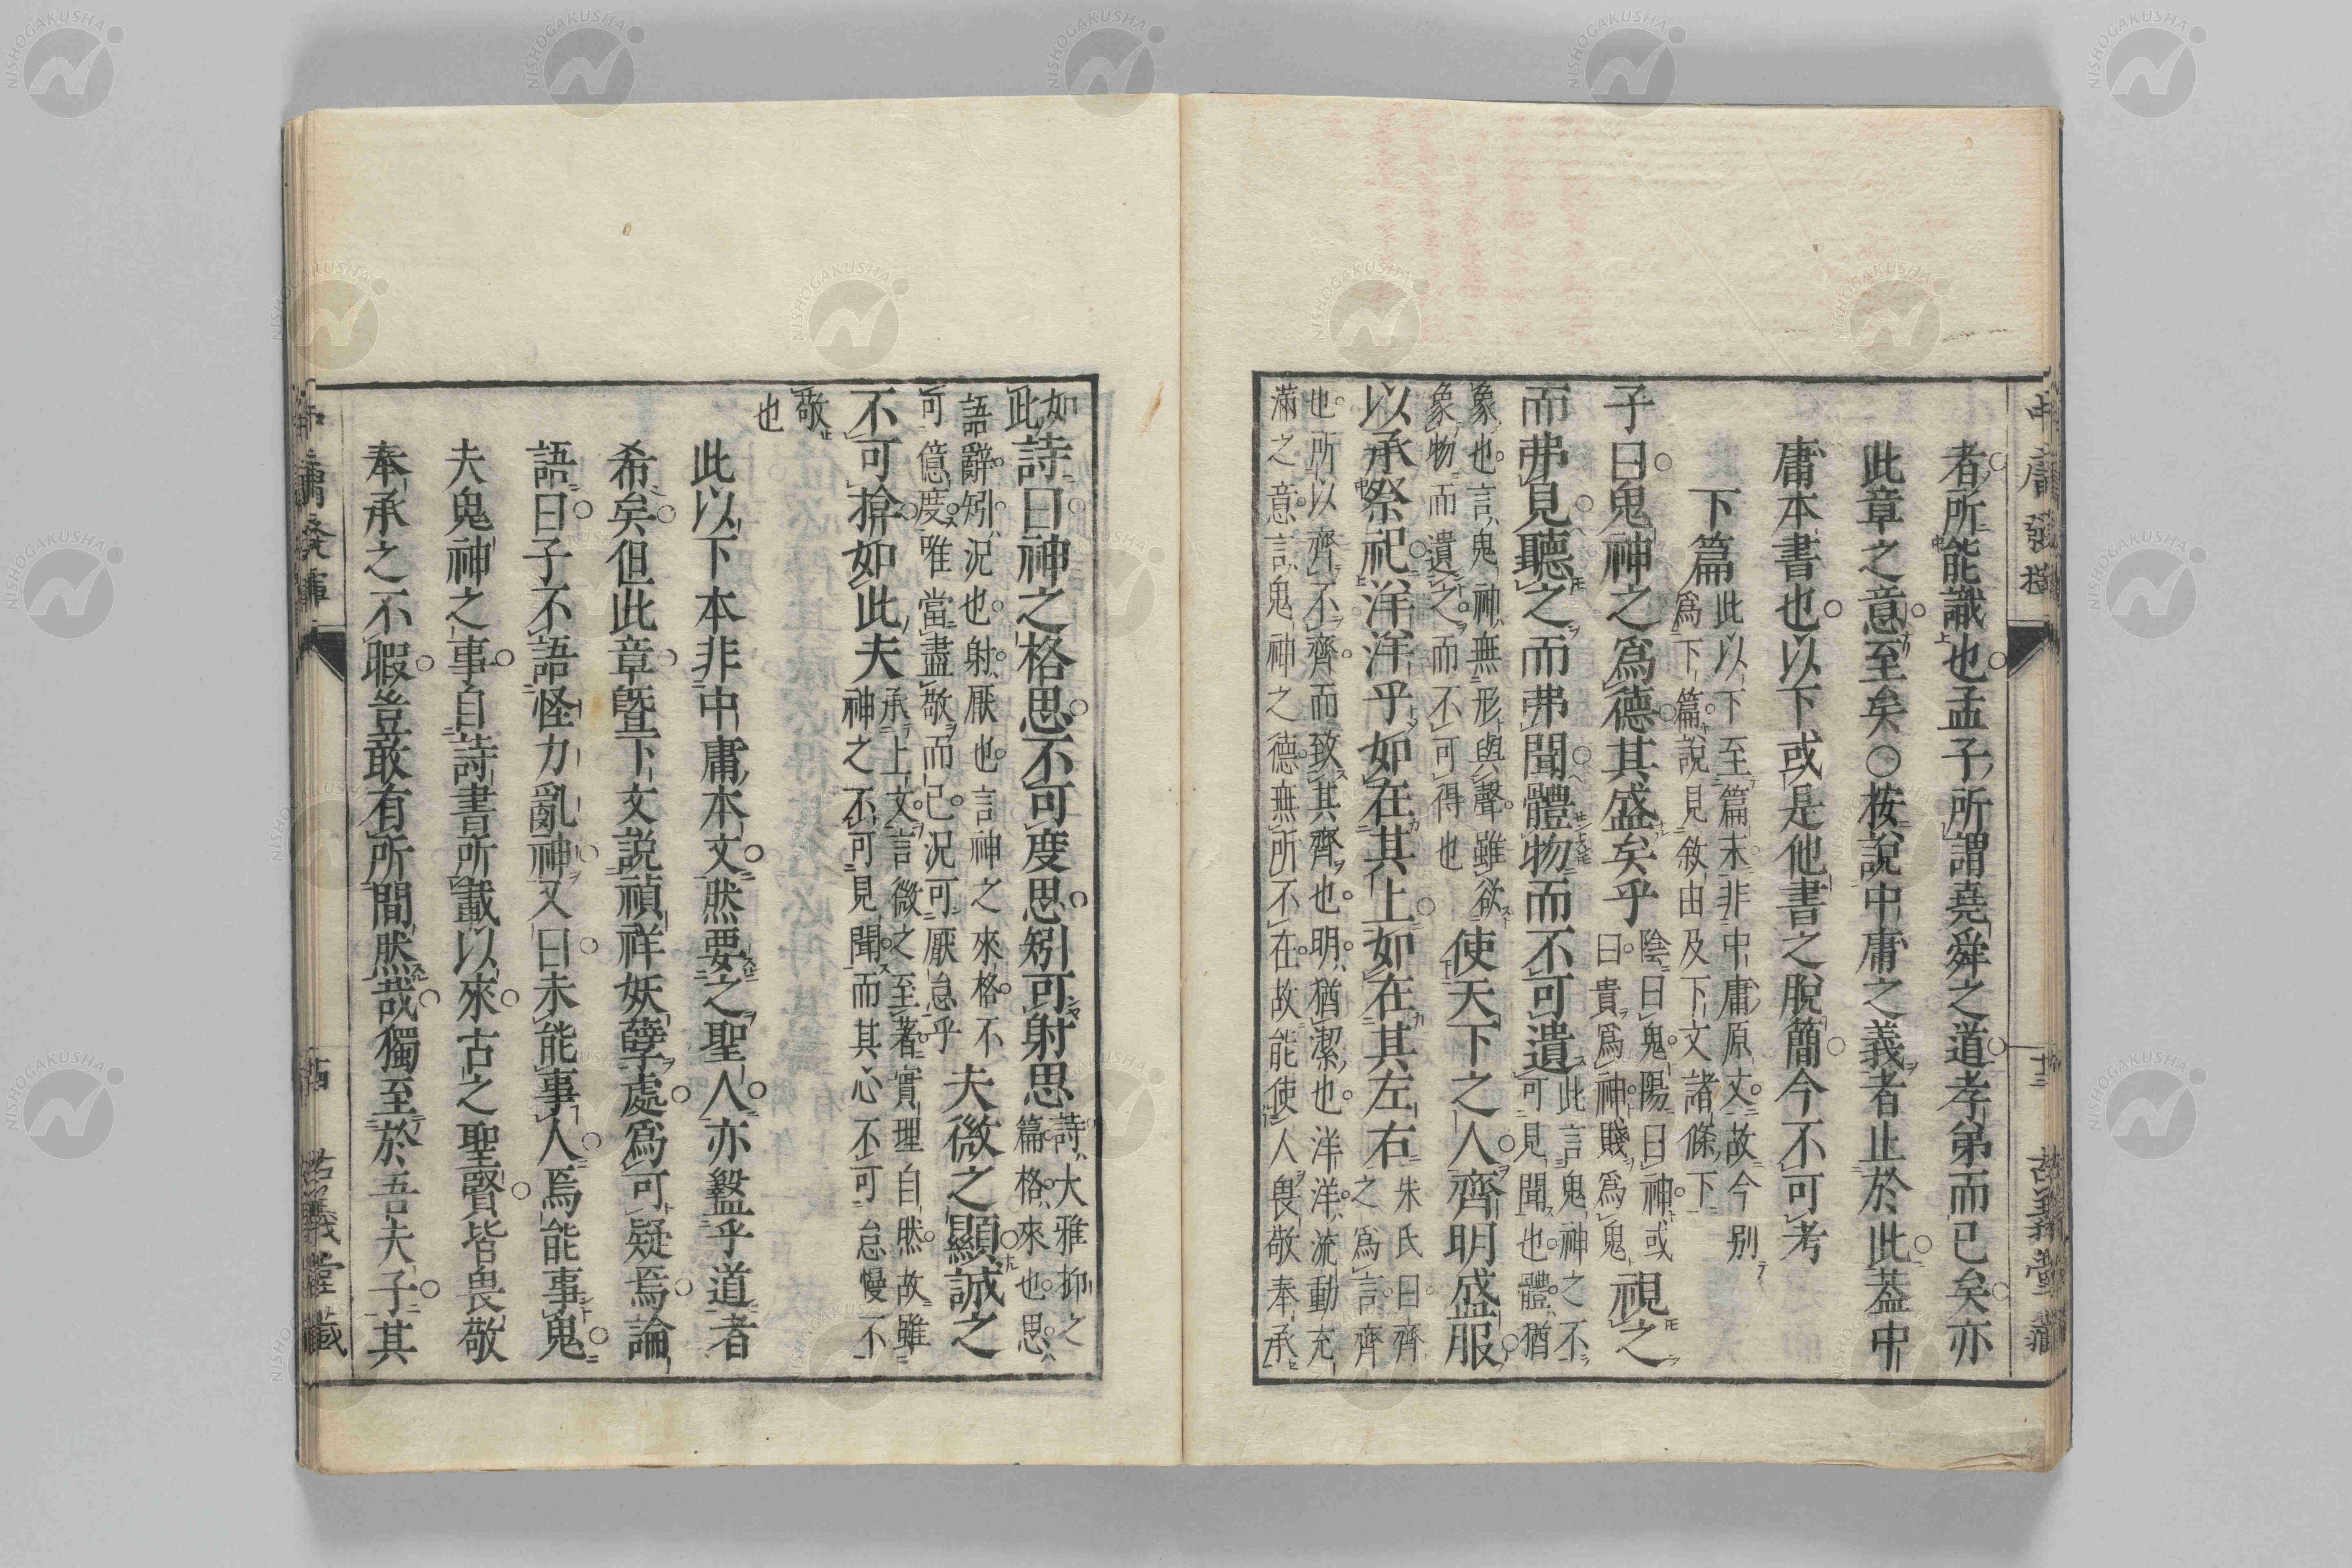 者所能識也孟子所謂堯舜之道孝弟而已矣亦
此章之意至矣○按說中庸之義者止於此蓋中
庸本書也以下或是他書之脫簡今不可考
下篇此以下至篇末非中庸原文故今別
爲下篇說見敘由及下文諸條下
子曰鬼神之爲德其盛矣乎陰曰鬼陽曰神或
曰貴爲神賤爲鬼視之
而弗見聽之而弗聞體物而不可遺此言鬼神之不
可見聞也體猶
象也言鬼神無形與聲雖欲
象物而遺之而不可得也使天下之人齊明盛服
以承祭祀洋洋乎如在其上如在其左右朱氏曰齊
之爲言齊
也所以齊不齊而致其齊也明猶潔也洋洋流動充
滿之意言鬼神之德無所不在故能使人畏敬奉承
如
此詩曰神之格思不可度思矧可射思詩大雅抑之
篇格來也思
語辭矧況也射厭也言神之來格不
可億度唯當盡敬而已況可厭怠乎夫微之顯誠之
不可揜如此夫承上文言微之至著實理自然故雖
神之不可見聞而其心不可怠慢不
敬
也
此以下本非中庸本文然要之聖人亦鑿乎道者
希矣但此章曁下文說禎祥妖孽處爲可疑焉論
語曰子不語怪力亂神又曰未能事人焉能事鬼
夫鬼神之事自詩書所載以來古之聖賢皆畏敬
奉承之不暇豈敢有所間然哉獨至於吾夫子其
中庸發揮
十三
古義堂藏
NISHOGAKUSHA